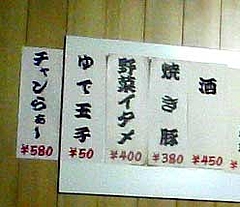 酒
¥450
焼き豚
¥380
野菜イタメ
¥400
ゆで玉子
¥50
チャンらぁ~
¥580